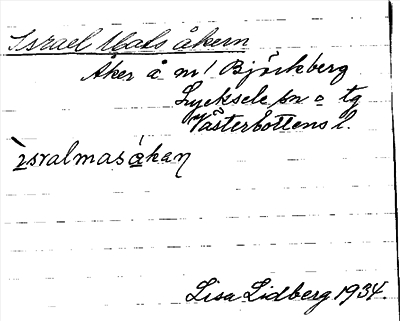 Israel Mats åkern
Åker å m/ Björkberg
Lycksele sn o tg
Västerbottens l.
ìsralmasákan
Lisa Lidberg 1934.